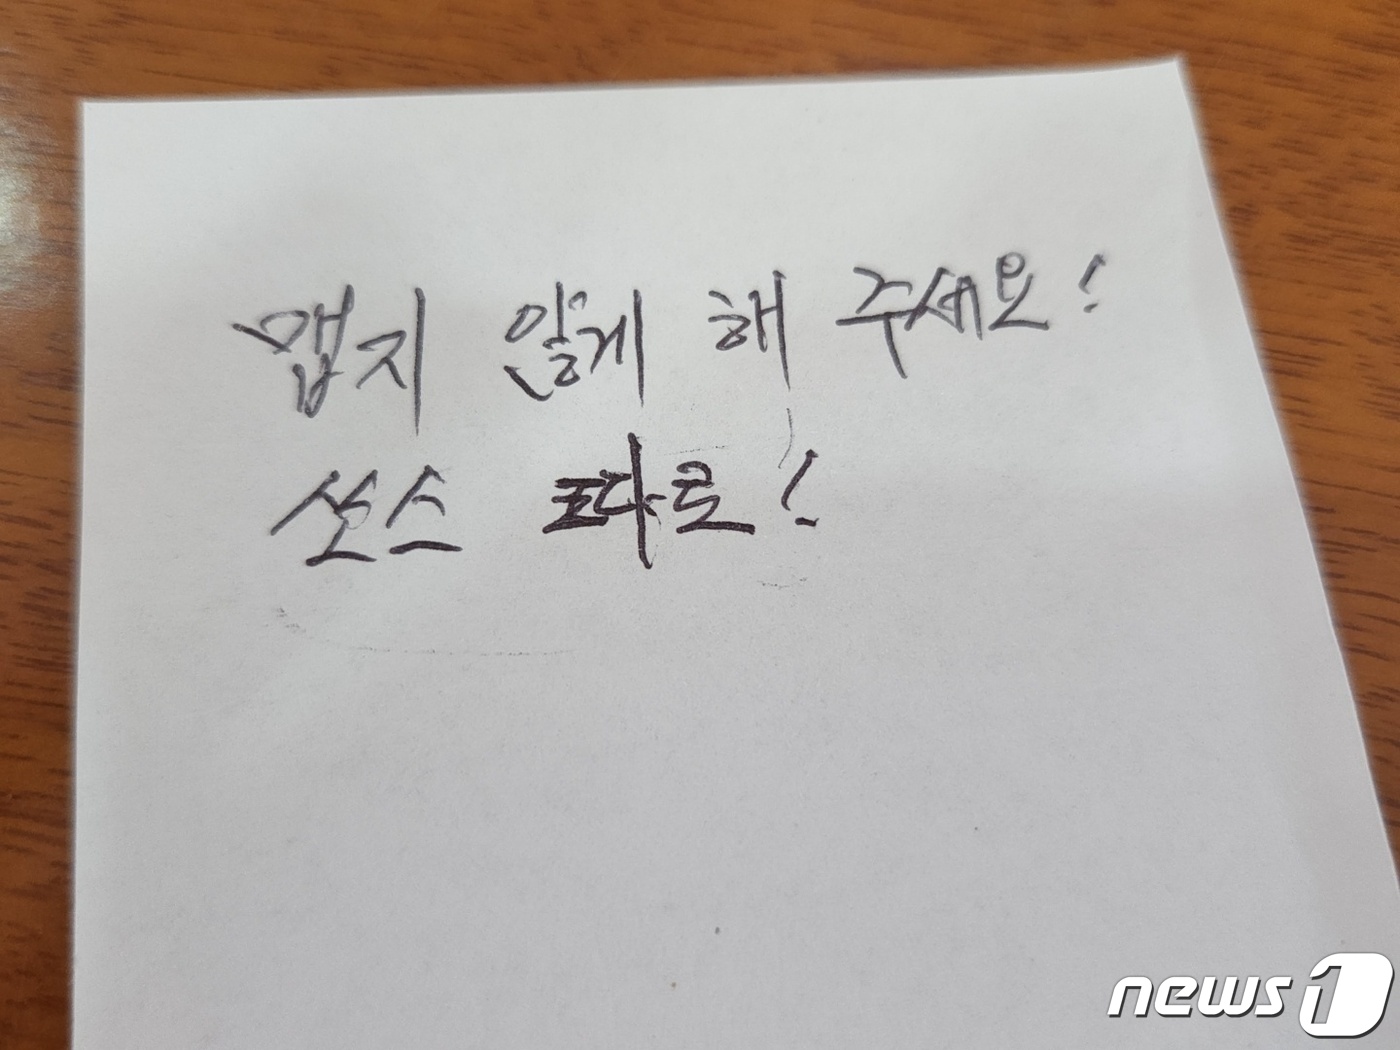 맵지 않게 해 주세요!
쏘스 따로!
news1